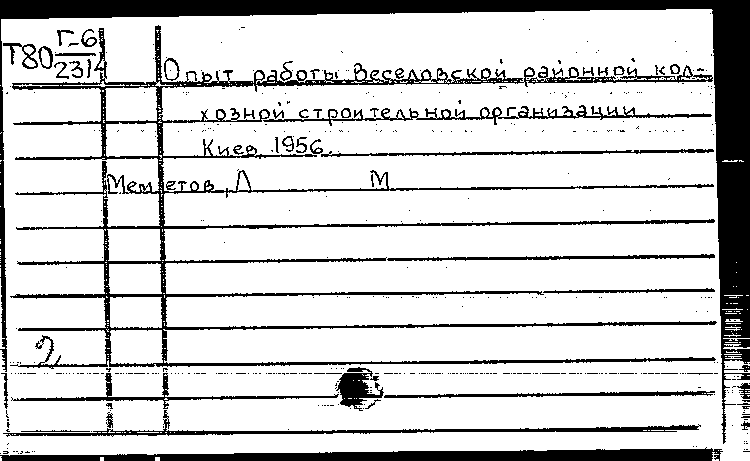 Т80 Г-6
2314
Опыт работы Веселовской районной кол-
хозной строительной организации
Киев, 1956.
Меметов, Л М
2